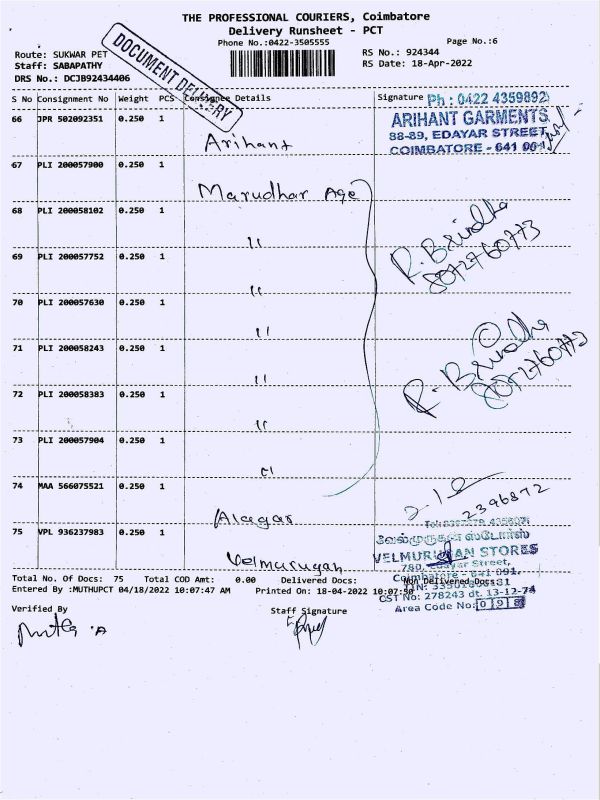 THE PROFESSIONAL COURIERS, Coimbatore
Delivery Runsheet - PCT
Phone No.:0422-3505555
Page No.:6
Route: SUKWAR PET
RS No.: 924344
Staff: SABAPATHY
RS Date: 18-Apr-2022
DRS No.: DCJB92434406
DOCUMENT DELIVERY
S No Consignment No Weight PCS Consignee Details Signature
Ph : 0422 4359892
66 JPR 502092351 0.250 1 Arihant
ARIHANT GARMENTS
88-89, EDAYAR STREET,
COIMBATORE - 641 001
67 PLI 200057900 0.250 1 Marudhar Age
68 PLI 200058102 0.250 1 "
R. Brindha
8072760773
69 PLI 200057752 0.250 1 "
70 PLI 200057630 0.250 1 "
71 PLI 200058243 0.250 1 "
R. Brindha
72 PLI 200058383 0.250 1 "
73 PLI 200057904 0.250 1 "
74 MAA 566075521 0.250 1 Alagar
2396872
75 VPL 936237983 0.250 1 Velmurugan
வேல்முருகன் ஸ்டோர்ஸ்
VELMURUGAN STORES
780, Edayar Street,
Coimbatore - 641 001.
Total No. Of Docs: 75 Total COD Amt: 0.00 Delivered Docs: Non Delivered Docs:
Entered By :MUTHUPCT 04/18/2022 10:07:47 AM Printed On: 18-04-2022 10:07:50
CST No: 278243 dt. 13-12-74
Area Code No: 098
Verified By
Staff Signature